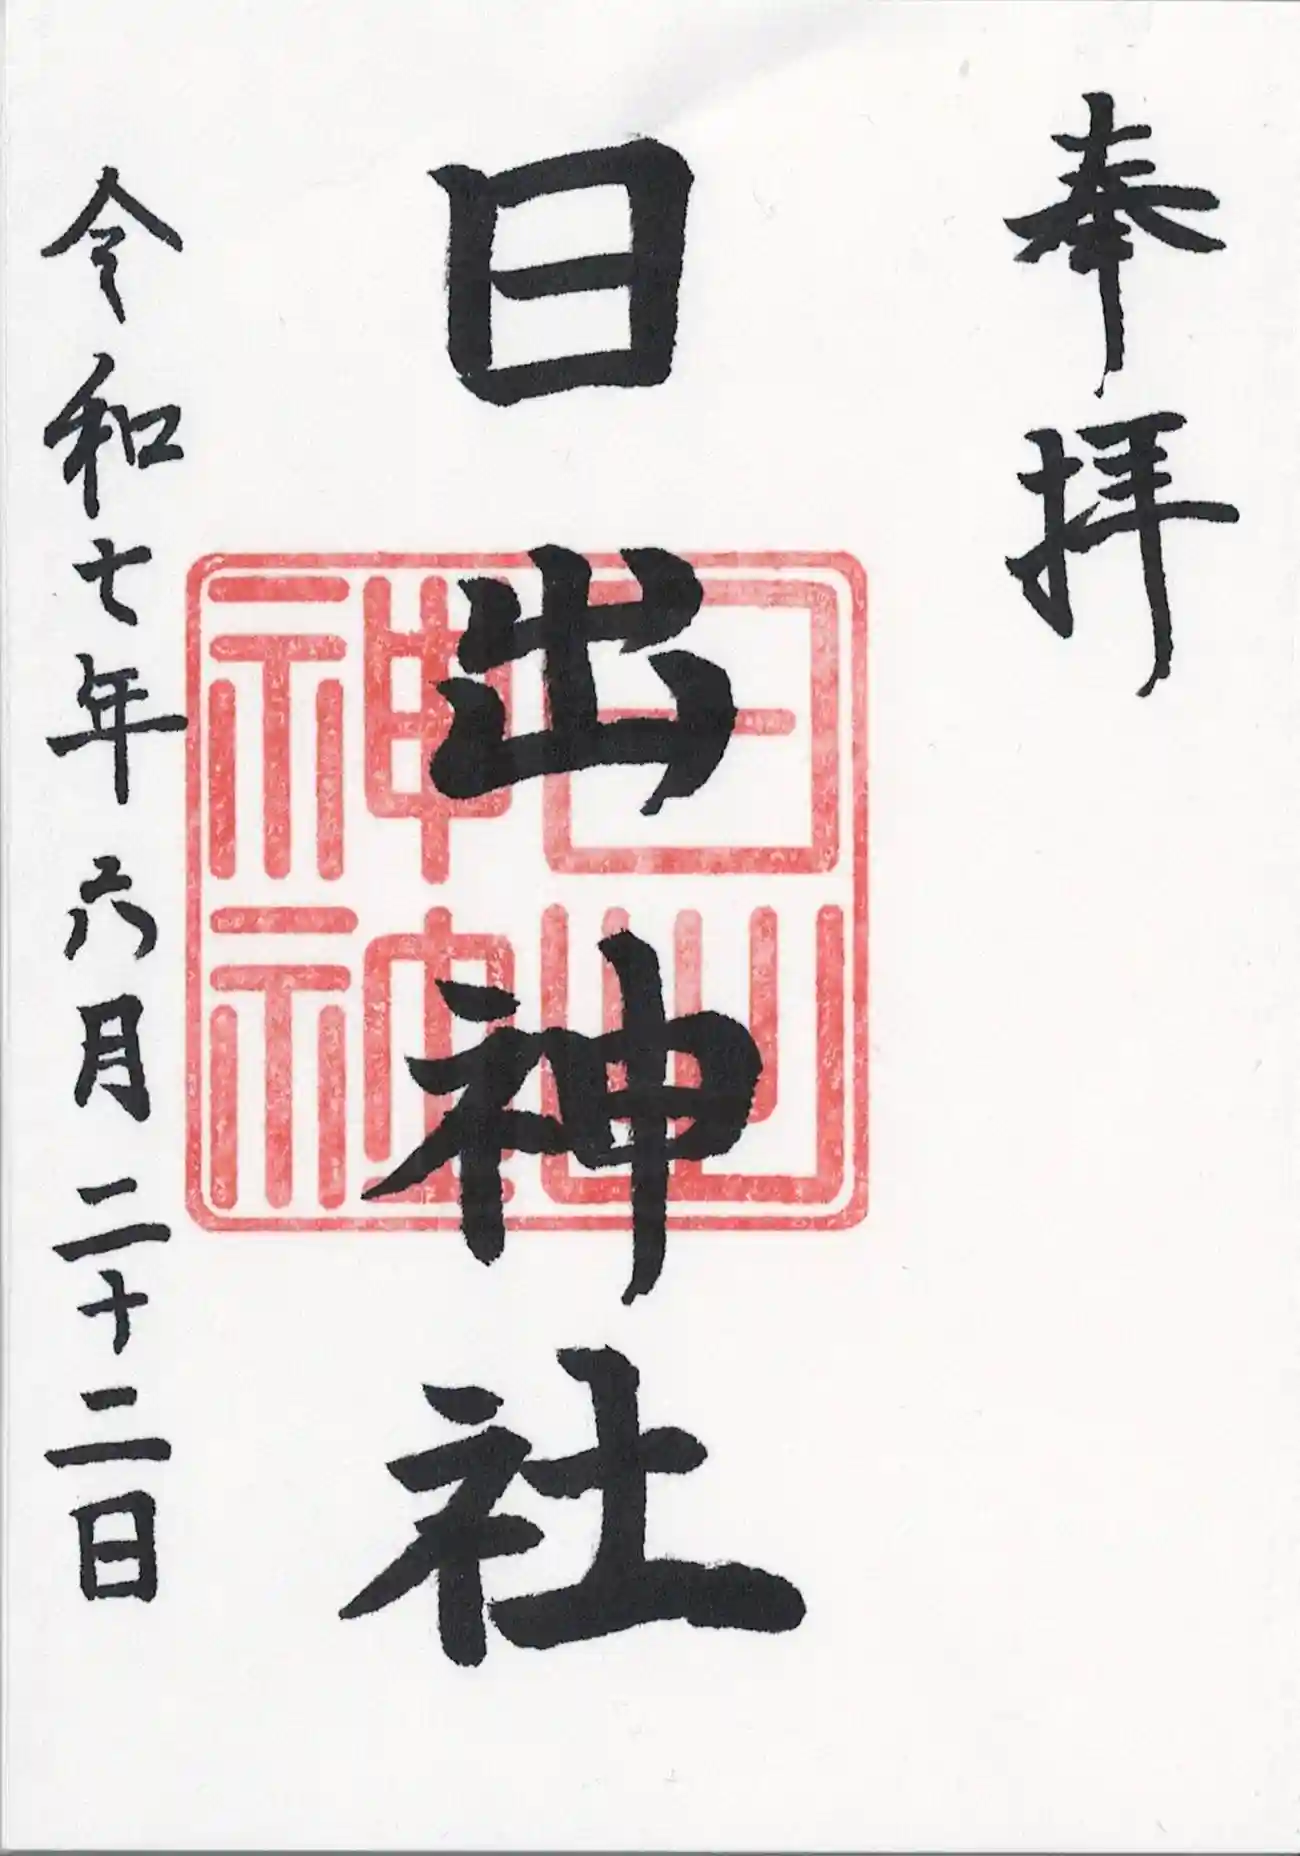 奉拝
日出神社
日出神社
令和七年六月二十二日